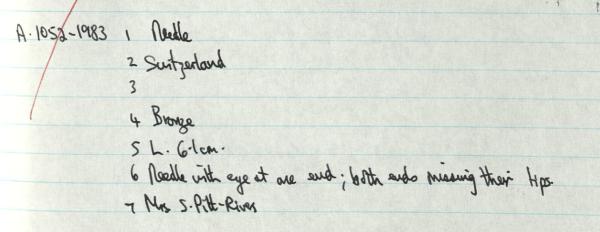 A.1052-1983 1 Needle
2 Switzerland
3
4 Bronze
5 L. 6.1cm.
6 Needle with eye at one end; both ends missing their tips.
7 Mrs S. Pitt-Rivers